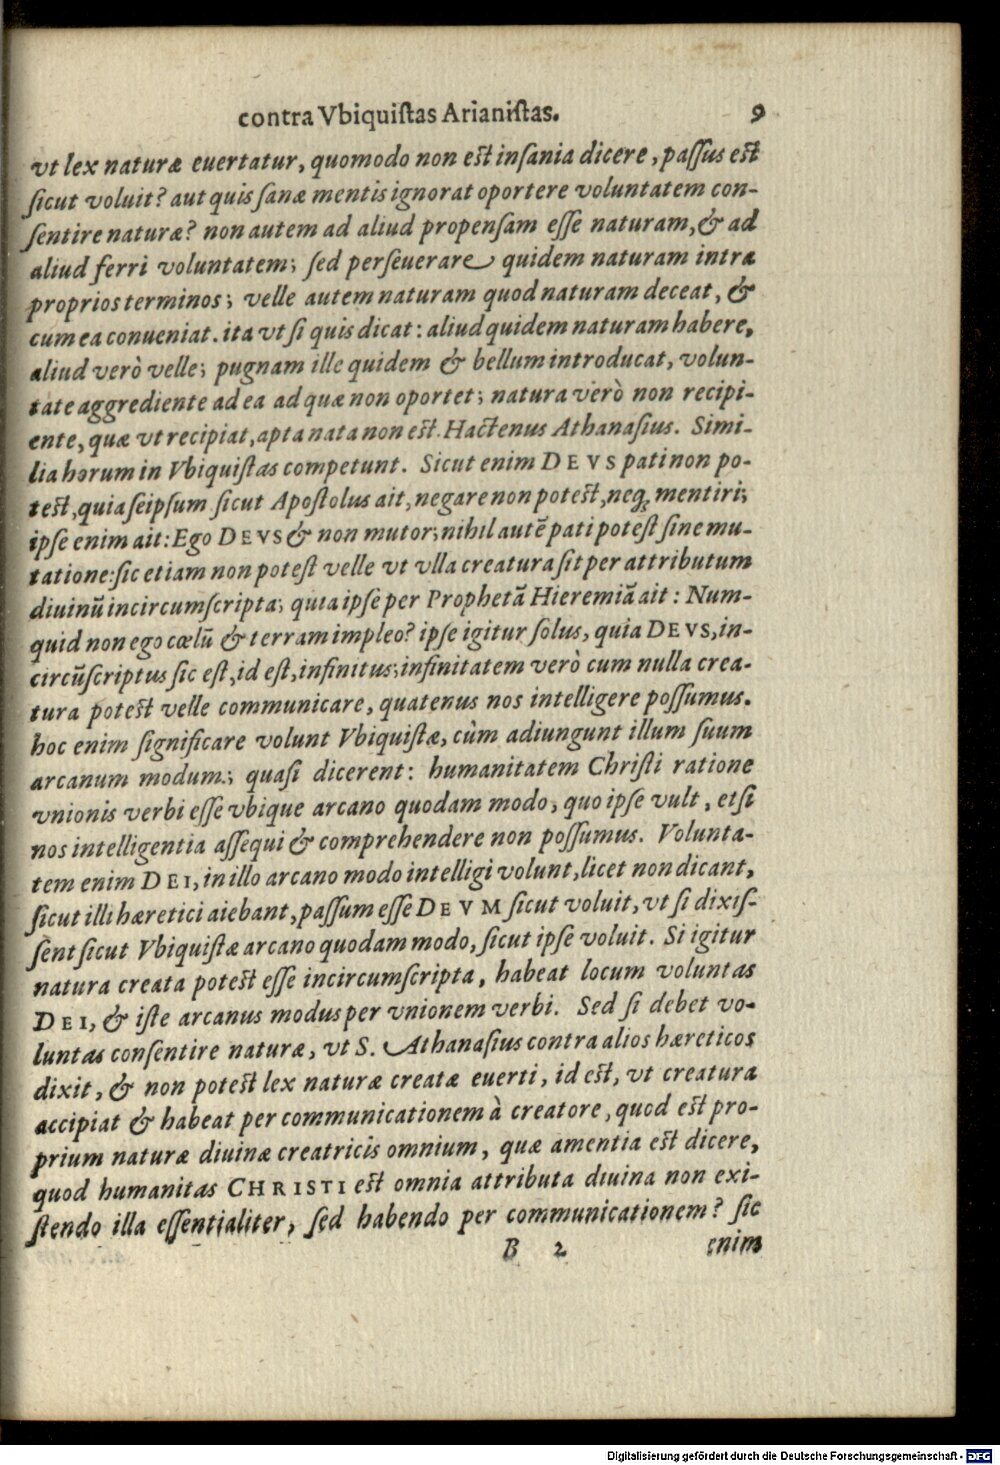 contra Vbiquiſtas Arianiſtas. 9
vt lex naturæ euertatur, quomodo non eſt inſania dicere, paſſus eſt
ſicut voluit? aut quis ſanæ mentis ignorat oportere voluntatem con-
ſentire naturæ? non autem ad aliud propenſam eſſe naturam, & ad
aliud ferri voluntatem; ſed perſeuerare quidem naturam intra
proprios terminos; velle autem naturam quod naturam deceat, &
cum ea conueniat. ita vt ſi quis dicat: aliud quidem naturam habere,
aliud verò velle; pugnam ille quidem & bellum introducat, volun-
tate aggrediente ad ea ad quæ non oportet; natura verò non recipi-
ente, quæ vt recipiat, apta nata non eſt. Hactenus Athanaſius. Simi-
lia horum in Vbiquiſtas competunt. Sicut enim DEVS pati non po-
teſt, quia ſeipſum ſicut Apoſtolus ait, negare non poteſt, neq; mentiri;
ipſe enim ait: Ego DEVS & non mutor; nihil autē pati poteſt ſine mu-
tatione: ſic etiam non poteſt velle vt vlla creatura ſit per attributum
diuinū incircumſcripta; quia ipſe per Prophetā Hieremiā ait: Num-
quid non ego cœlū & terram impleo? ipſe igitur ſolus, quia DEVS, in-
circūſcriptus ſic eſt, id eſt, infinitus; infinitatem verò cum nulla crea-
tura poteſt velle communicare, quatenus nos intelligere poſſumus.
hoc enim ſignificare volunt Vbiquiſtæ, cùm adiungunt illum ſuum
arcanum modum; quaſi dicerent: humanitatem Chriſti ratione
vnionis verbi eſſe vbique arcano quodam modo, quo ipſe vult, etſi
nos intelligentia aſſequi & comprehendere non poſſumus. Volunta-
tem enim DEI, in illo arcano modo intelligi volunt, licet non dicant,
ſicut illi hæretici aiebant, paſſum eſſe DEVM ſicut voluit, vt ſi dixiſ-
ſent ſicut Vbiquiſtæ arcano quodam modo, ſicut ipſe voluit. Si igitur
natura creata poteſt eſſe incircumſcripta, habeat locum voluntas
DEI, & iſte arcanus modus per vnionem verbi. Sed ſi debet vo-
luntas conſentire naturæ, vt S. Athanaſius contra alios hæreticos
dixit, & non poteſt lex naturæ creatæ euerti, id eſt, vt creatura
accipiat & habeat per communicationem à creatore, quod eſt pro-
prium naturæ diuinæ creatricis omnium, quæ amentia eſt dicere,
quod humanitas CHRISTI eſt omnia attributa diuina non exi-
ſtendo illa eſſentialiter, ſed habendo per communicationem? ſic
B 2 enim
Digitalisierung gefördert durch die Deutsche Forschungsgemeinschaft - DFG